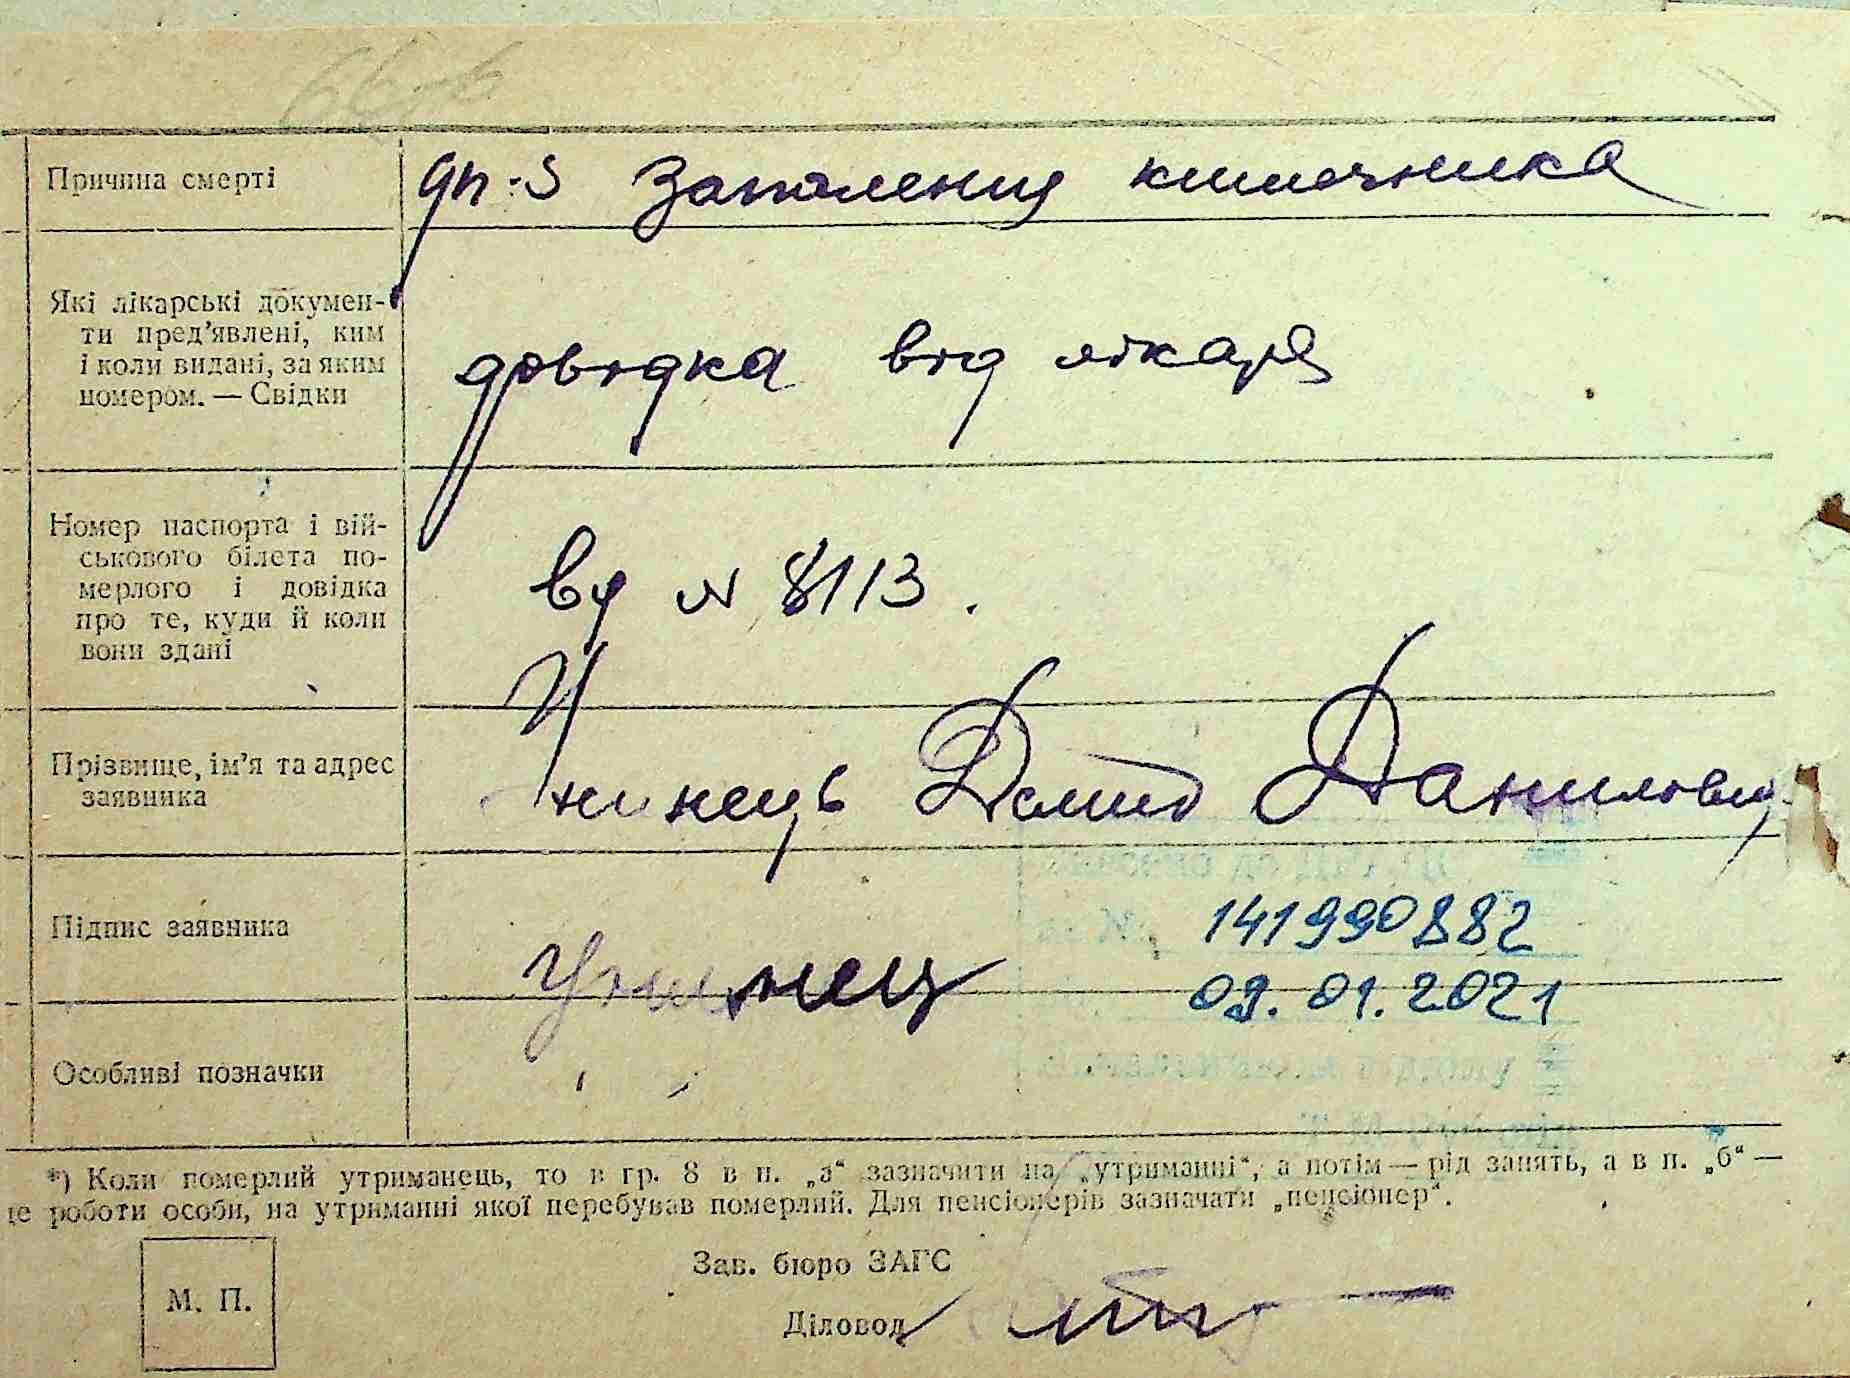 Причина смерті
дп-s Запалення кишечника
Які лікарські докумен-
ти пред'явлені, ким
і коли видані, за яким
номером. — Свідки
довідка від лікаря
Номер паспорта і вій-
ськового білета по-
мерлого і довідка
про те, куди й коли
вони здані
вд N 8113.
Прізвище, ім'я та адрес
заявника
Данилович
Підпис заявника
141990882
09.01.2021
Особливі позначки
*) Коли померлий утриманець, то в гр. 8 в п. „а“ зазначити на „утриманні“, а потім — рід занять, а в п. „б“ —
це роботи особи, на утриманні якої перебував померлий. Для пенсіонерів зазначати „пенсіонер“.
Зав. бюро ЗАГС
М. П.
Діловод